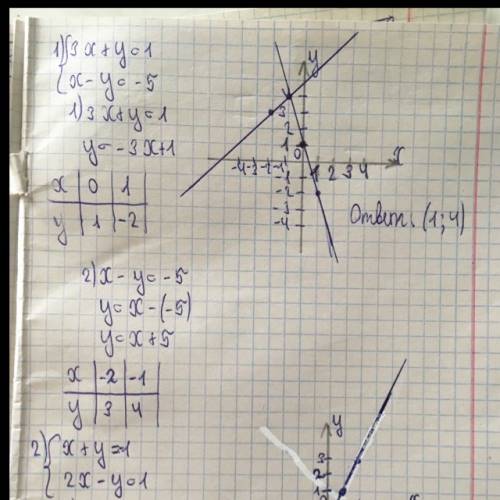 1) { 3x + y = 1
x - y = -5
1) 3x + y = 1
y = -3x + 1
x | 0 | 1
y | 1 | -2
2) x - y = -5
y = x - (-5)
y = x + 5
x | -2 | -1
y | 3 | 4
2) { x + y = 1
2x - y = 1
y
4
3
2
1
0
-4 -3 -2 -1
1 2 3 4
x
-2
-3
-4
Ответ: (1; 4)
y
3
2
1